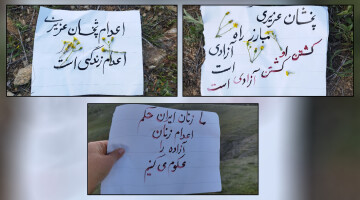 اعدام پخشان عزیزی
اعدام زندگی است
پخشان عزیزی
مبارز راه
آزادی
است
کشتن او
کشتن آزادی است
است
ما زنان ایران حکم
اعدام زنان
آزاده را
محکوم می کنیم